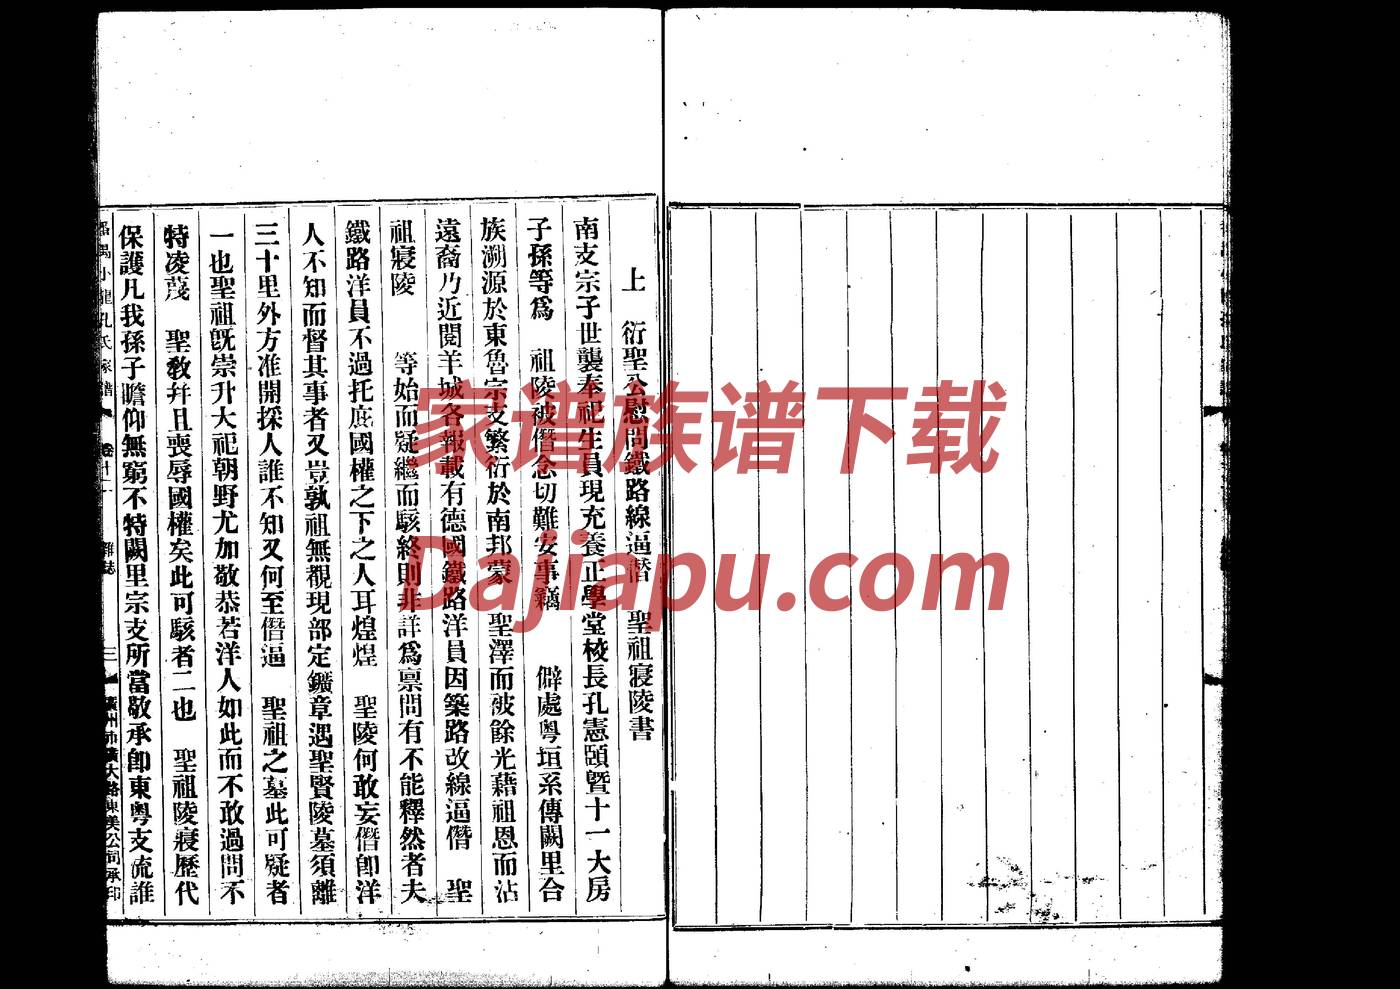 上　衍聖公慰問鐵路線逼僭　聖祖寢陵書
南支宗子世襲奉祀生員現充養正學堂校長孔憲頤暨十一大房
子孫等爲　祖陵被僭念切難安事竊　僻處粵垣系傳闕里合
族溯源於東魯宗支繁衍於南邦蒙　聖澤而被餘光藉祖恩而沾
遠裔乃近閱羊城各報載有德國鐵路洋員因築路改線逼僭　聖
祖寢陵　等始而疑繼而駭終則非詳爲禀問有不能釋然者夫
鐵路洋員不過托庶國權之下之人耳煌煌　聖陵何敢妄僭卽洋
人不知而督其事者又豈孰祖無覩現部定鑛章遇聖賢陵墓須離
三十里外方准開採人誰不知又何至僭逼　聖祖之墓此可疑者
一也聖祖旣崇升大祀朝野尤加敬恭若洋人如此而不敢過問不
特凌蔑　聖教幷且喪辱國權矣此可駭者二也　聖祖陵寢歷代
保護凡我孫子瞻仰無窮不特闕里宗支所當敬承卽東粵支流誰
番禺小龍孔氏家譜　卷十二　雜誌　三　廣州市惠大路東美公司承印
家谱族谱下载
Dajiapu.com